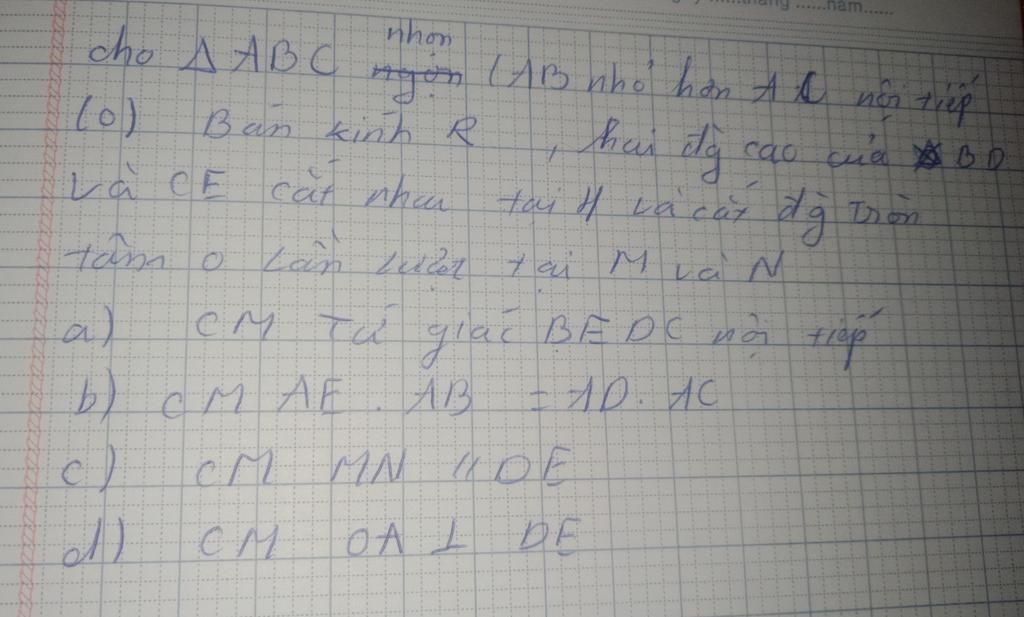 ......tháng ......năm......
nhọn
cho Δ ABC ngọn (AB nhỏ hơn AC nội tiếp
(o) Bán kính R , hai đg cao của BD
và CE cắt nhau tại H và cắt đg tròn
tâm o lần lượt tại M và N
a) CM Tứ giác BEDC nội tiếp
b) CM AE . AB = AD. AC
c) CM MN // DE
d) CM OA ⊥ DE